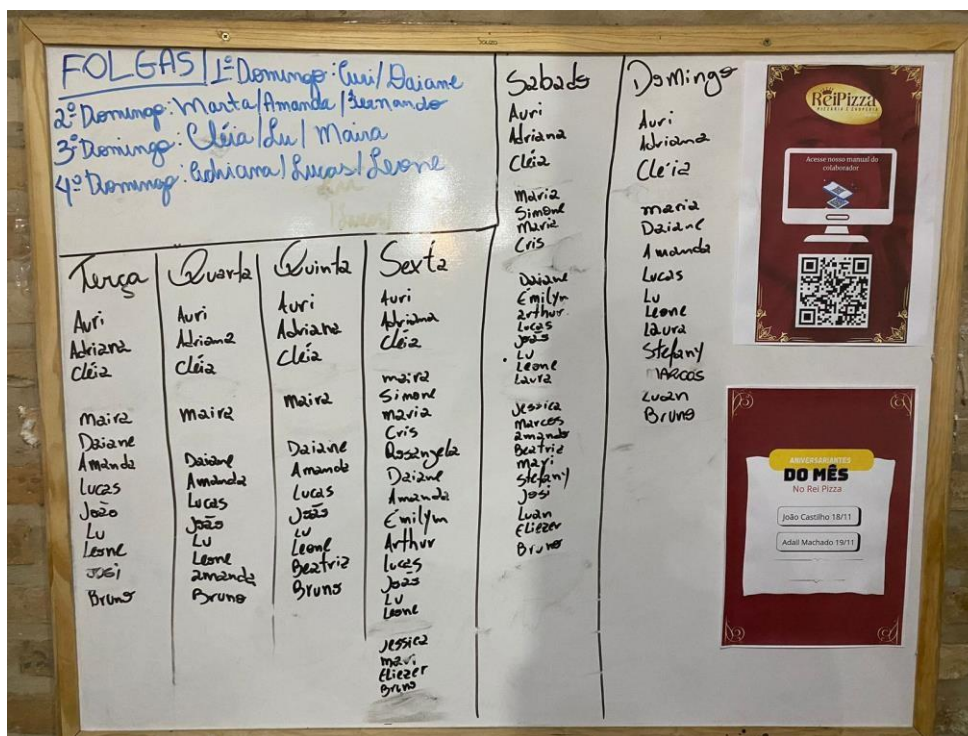 FOLGAS 1º Domingo: Auri/Daiane
2º Domingo: Marta/Amanda/Fernando
3º Domingo: Cléia/Lu/Maira
4º Domingo: Adriana/Lucas/Leone
Terça
Auri
Adriana
Cléia
Maira
Daiane
Amanda
Lucas
João
Lu
Leone
Josi
Bruno
Quarta
Auri
Adriana
Cléia
Maira
Daiane
Amanda
Lucas
João
Lu
Leone
amanda
Bruno
Quinta
Auri
Adriana
Cléia
Maira
Daiane
Amanda
Lucas
João
Lu
Leone
Beatriz
Bruno
Sexta
Auri
Adriana
Cléia
maira
Simone
maria
Cris
Rosangela
Daiane
Amanda
Emilym
Arthur
lucas
João
Lu
Leone
Jessica
mavi
Eliezer
Bruno
Sabado
Auri
Adriana
Cléia
Maria
Simone
Maria
Cris
Daiane
Emilyn
arthur
Lucas
João
Lu
Leone
Laura
Jessica
Marcos
amanda
Beatriz
Mavi
Stefany
Josi
Luan
Eliezer
Bruno
Domingo
Auri
Adriana
Cléia
maria
Daiane
Amanda
Lucas
Lu
Leone
Laura
Stefany
MARCOS
Luan
Bruno
ReiPizza
PIZZARIA E CHOPERIA
Acesse nosso manual do
colaborador
ANIVERSARIANTES
DO MÊS
No Rei Pizza
João Castilho 18/11
Adail Machado 19/11